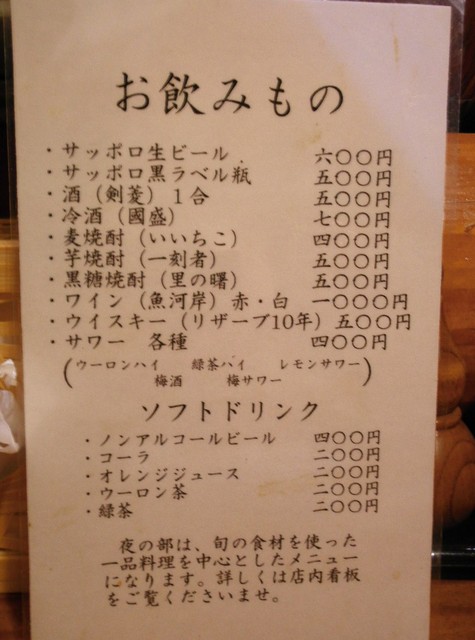 お飲みもの
・サッポロ生ビール 六〇〇円
・サッポロ黒ラベル瓶 五〇〇円
・酒（剣菱）１合 五〇〇円
・冷酒（國盛） 七〇〇円
・麦焼酎（いいちこ） 四〇〇円
・芋焼酎（一刻者） 五〇〇円
・黒糖焼酎（里の曙） 五〇〇円
・ワイン（魚河岸）赤・白 一〇〇〇円
・ウイスキー（リザーブ10年）五〇〇円
・サワー 各種 四〇〇円
（ウーロンハイ 緑茶ハイ レモンサワー
梅酒 梅サワー）
ソフトドリンク
・ノンアルコールビール 四〇〇円
・コーラ 二〇〇円
・オレンジジュース 二〇〇円
・ウーロン茶 二〇〇円
・緑茶 二〇〇円
夜の部は、旬の食材を使った
一品料理を中心としたメニュー
になります。詳しくは店内看板
をご覧くださいませ。